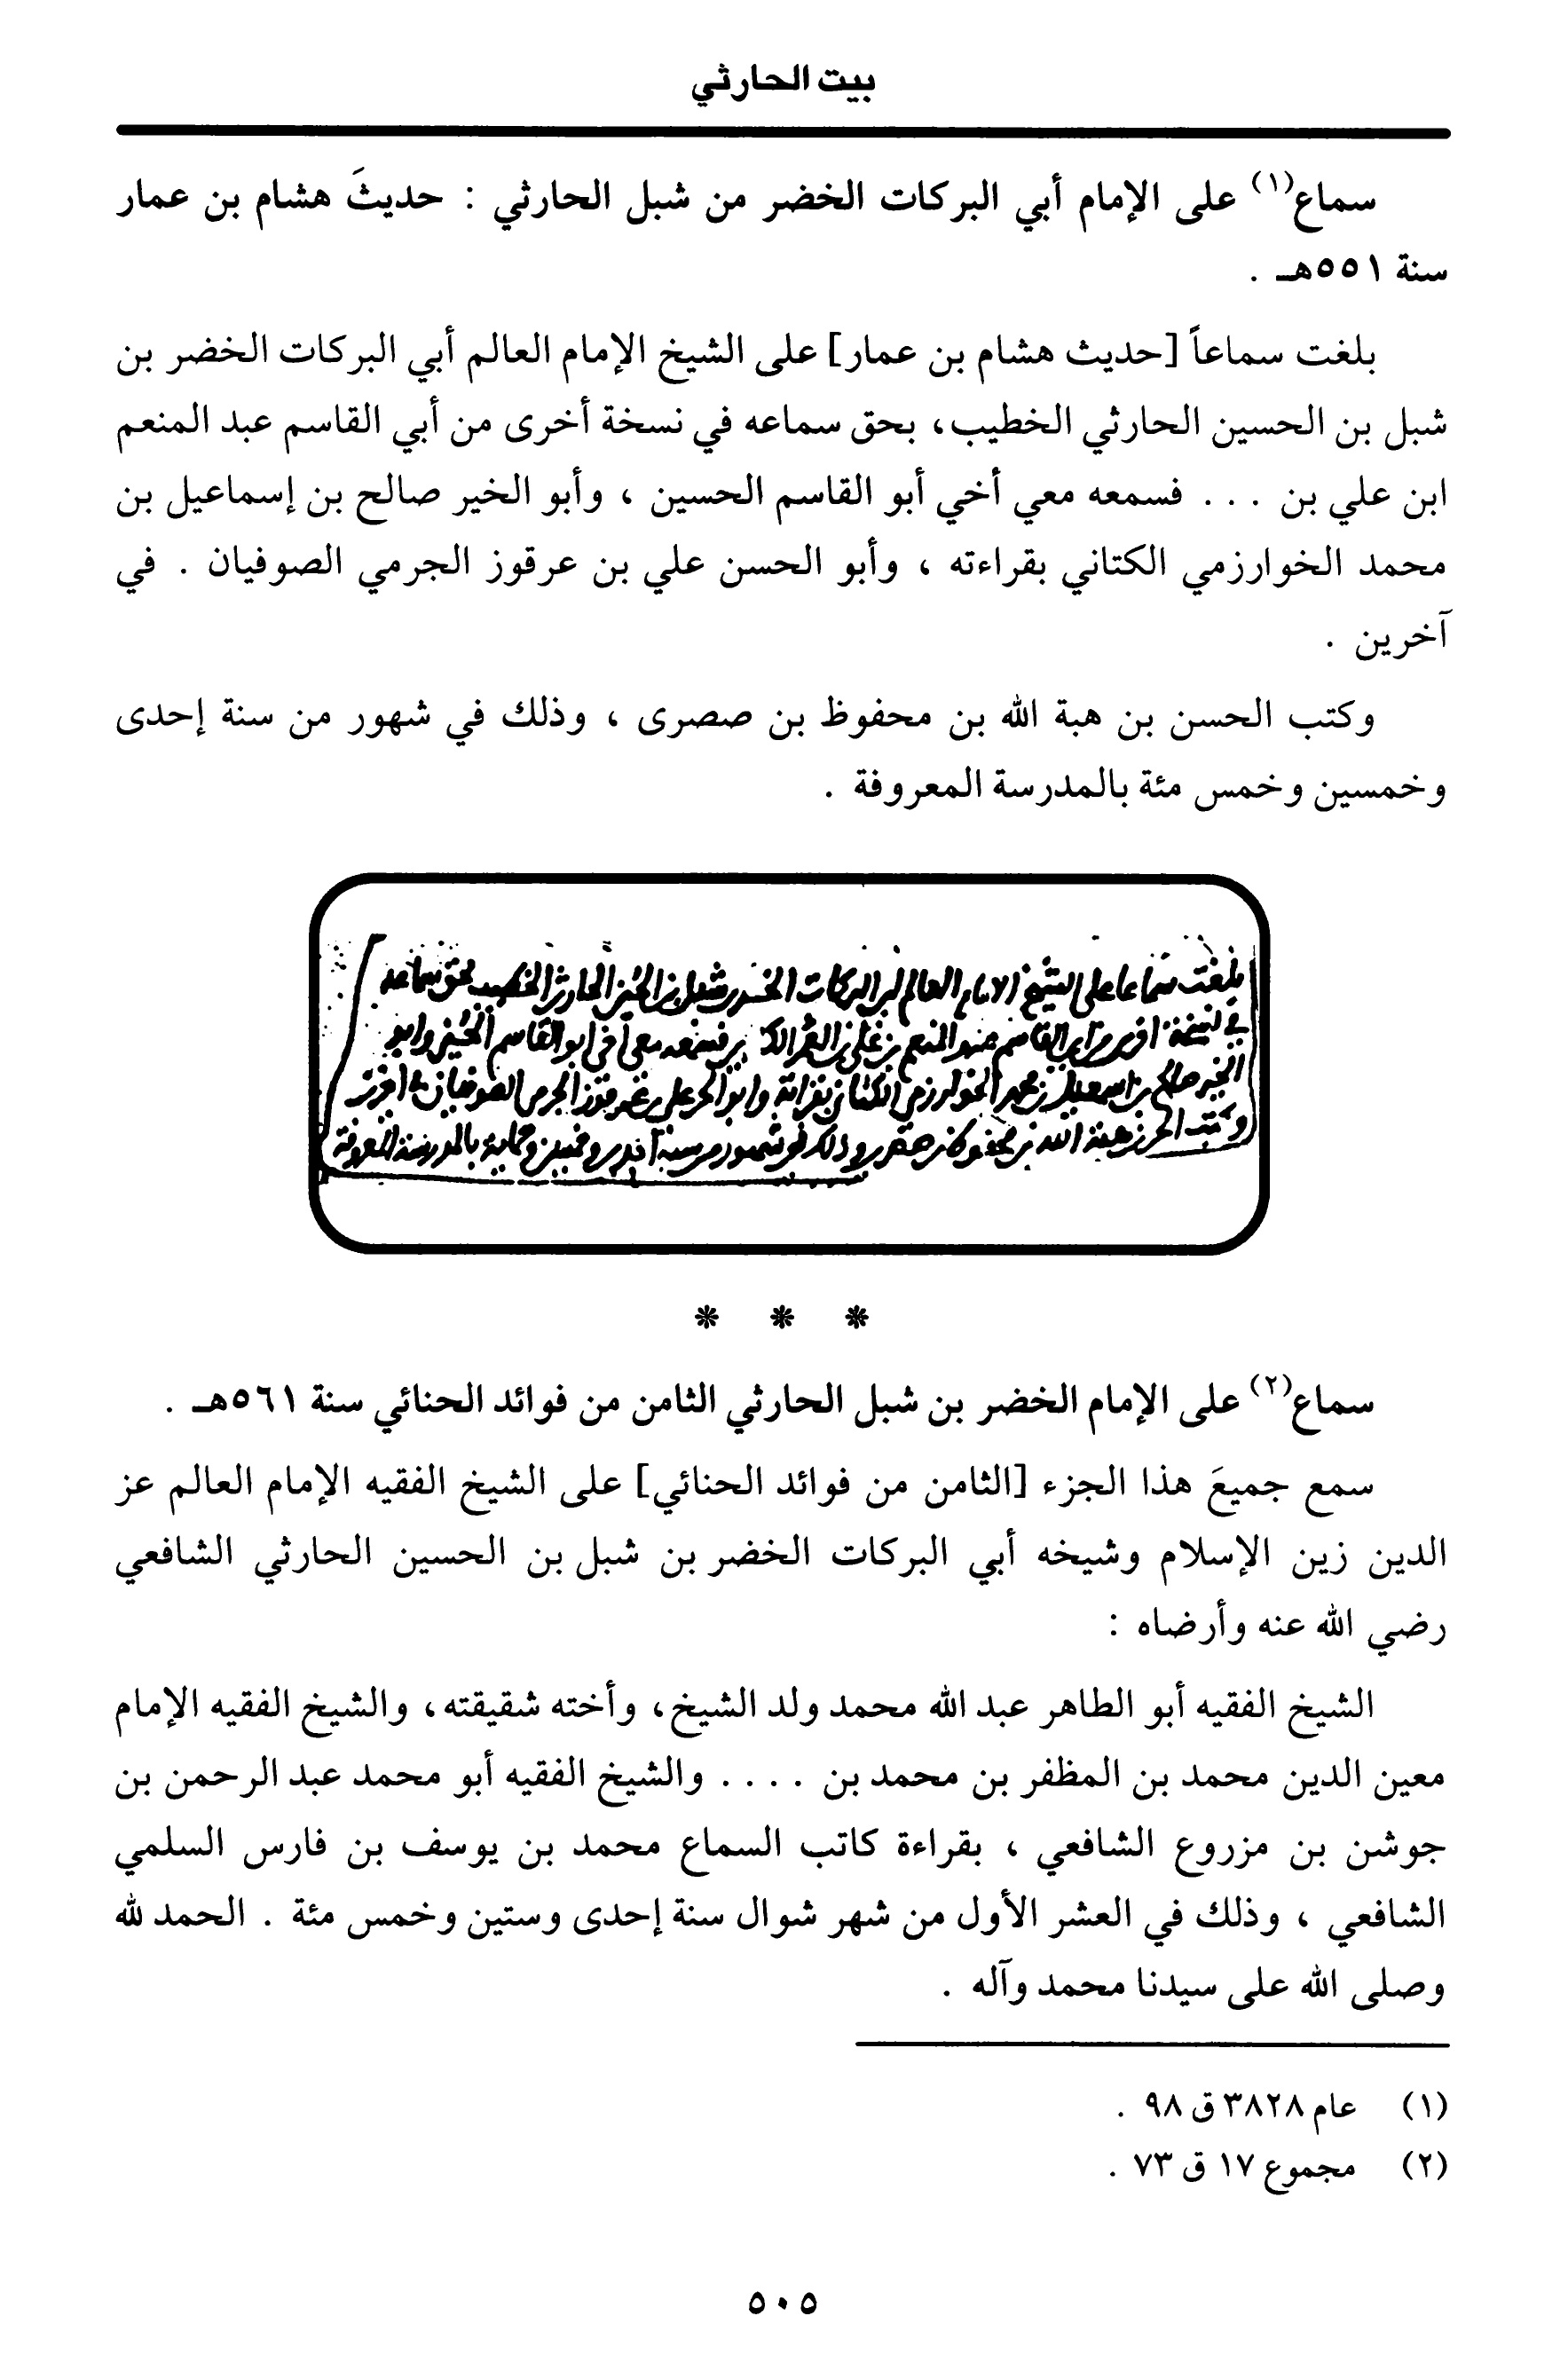 بيت الحارثي
سماع(١) على الإمام أبي البركات الخضر من شبل الحارثي : حديثَ هشام بن عمار
سنة ٥٥١هـ .
بلغت سماعاً [حديث هشام بن عمار] على الشيخ الإمام العالم أبي البركات الخضر بن
شبل بن الحسين الحارثي الخطيب، بحق سماعه في نسخة أخرى من أبي القاسم عبد المنعم
ابن علي بن . . . فسمعه معي أخي أبو القاسم الحسين ، وأبو الخير صالح بن إسماعيل بن
محمد الخوارزمي الكتاني بقراءته ، وأبو الحسن علي بن عرقوز الجرمي الصوفيان . في
آخرين .
وكتب الحسن بن هبة الله بن محفوظ بن صصرى ، وذلك في شهور من سنة إحدى
وخمسين وخمس مئة بالمدرسة المعروفة .
بلغت سماعا على الشيخ الامام العالم ابي البركات الخضر بن شبل بن الحسين الحارثي الخطيب بحق سماعه
في نسخة اخرى من ابي القاسم عبد المنعم بن علي بن فسمعه معي اخي ابو القاسم الحسين وابو
الخير صالح بن اسمعيل بن محمد الخوارزمي الكتاني بقراته وابو الحسن علي بن عرقوز الجرمي الصوفيان في اخرين
وكتب الحسن بن هبة الله بن محفوظ بن صصرى وذلك في شهور من سنة احدى وخمسين وخمسماية بالمدرسة المعروفة
* * *
سماع(٢) على الإمام الخضر بن شبل الحارثي الثامن من فوائد الحنائي سنة ٥٦١هـ .
سمع جميعَ هذا الجزء [الثامن من فوائد الحنائي] على الشيخ الفقيه الإمام العالم عز
الدين زين الإسلام وشيخه أبي البركات الخضر بن شبل بن الحسين الحارثي الشافعي
رضي الله عنه وأرضاه :
الشيخ الفقيه أبو الطاهر عبد الله محمد ولد الشيخ، وأخته شقيقته، والشيخ الفقيه الإمام
معين الدين محمد بن المظفر بن محمد بن . . . . والشيخ الفقيه أبو محمد عبد الرحمن بن
جوشن بن مزروع الشافعي ، بقراءة كاتب السماع محمد بن يوسف بن فارس السلمي
الشافعي ، وذلك في العشر الأول من شهر شوال سنة إحدى وستين وخمس مئة . الحمد لله
وصلى الله على سيدنا محمد وآله .
(١) عام ٣٨٢٨ ق ٩٨ .
(٢) مجموع ١٧ ق ٧٣ .
٥٠٥